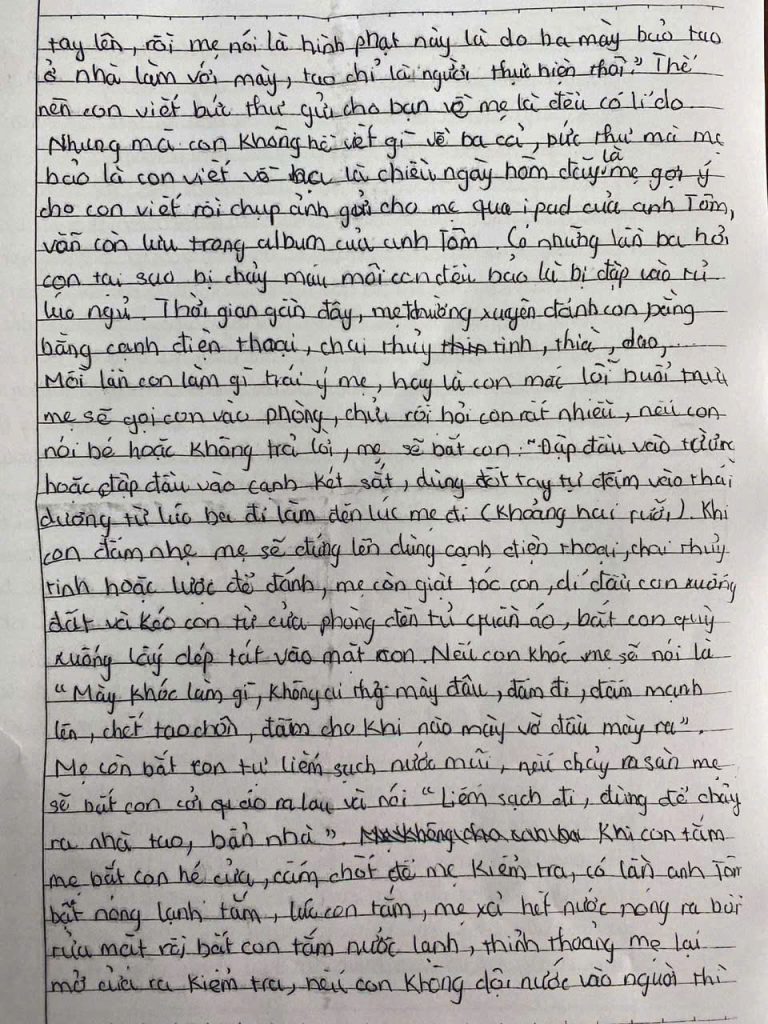 tay lên, rồi mẹ nói là hình phạt này là do ba mày bảo tao
ở nhà làm với mày, tao chỉ là người thực hiện thôi." Thế
nên con viết bức thư gửi cho bạn về mẹ là đều có lí do.
Nhưng mà con không hề viết gì về ba cả, bức thư mà mẹ
bảo là con viết về là chiều ngày hôm đấy là mẹ gợi ý
cho con viết rồi chụp ảnh gửi cho mẹ qua ipad của anh Tôm,
vẫn còn lưu trong album của anh Tôm. Có những lần ba hỏi
con tại sao bị chảy máu môi con đều bảo là bị đập vào tủ
lúc ngủ. Thời gian gần đây, mẹ thường xuyên đánh con bằng
bằng cạnh điện thoại, chai thủy tinh, thìa, dao,...
Mỗi lần con làm gì trái ý mẹ, hay là con mắc lỗi buổi trưa
mẹ sẽ gọi con vào phòng, chửi rồi hỏi con rất nhiều, nếu con
nói bé hoặc không trả lời, mẹ sẽ bắt con: "Đập đầu vào tường
hoặc đập đầu vào cạnh két sắt, dùng đốt tay tự đấm vào thái
dương từ lúc ba đi làm đến lúc mẹ đi (khoảng hai rưỡi). Khi
con đấm nhẹ mẹ sẽ đứng lên dùng cạnh điện thoại, chai thủy
tinh hoặc lược để đánh, mẹ còn giật tóc con, dí đầu con xuống
đất và kéo con từ cửa phòng đến tủ quần áo, bắt con quỳ
xuống lấy dép tát vào mặt con. Nếu con khóc mẹ sẽ nói là
"Mày khóc làm gì, không ai thở mày đâu, đấm đi, đấm mạnh
lên, chết tao chôn, đấm cho khi nào mày vỡ đầu mày ra".
Mẹ còn bắt con tự liếm sạch nước mũi, nếu chảy ra sàn mẹ
sẽ bắt con cởi quần áo ra lau và nói "Liếm sạch đi, đừng để chảy
ra nhà tao, bẩn nhà". Khi con tắm
mẹ bắt con hé cửa, cấm chốt để mẹ kiểm tra, có lần anh Tôm
bật nóng lạnh tắm, lúc con tắm, mẹ xả hết nước nóng ra bồn
rửa mặt rồi bắt con tắm nước lạnh, thỉnh thoảng mẹ lại
mở cửa ra kiểm tra, nếu con không dội nước vào người thì